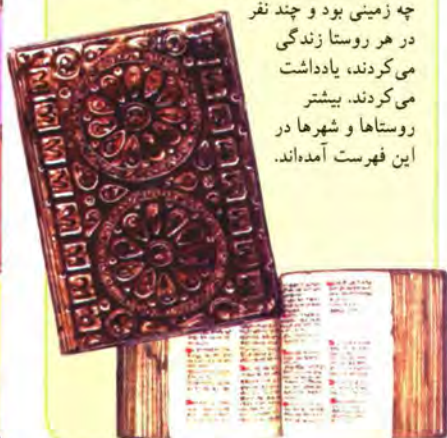 چه زمینی بود و چند نفر
در هر روستا زندگی
می‌کردند، یادداشت
می‌کردند. بیشتر
روستاها و شهرها در
این فهرست آمده‌اند.